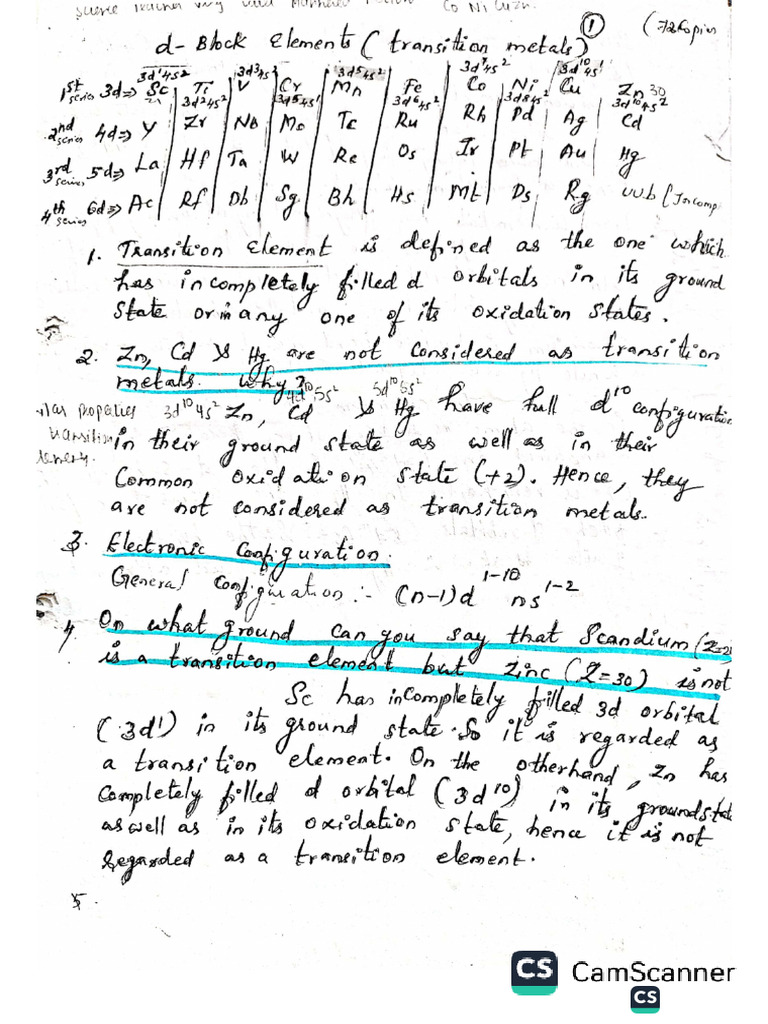 Co Ni Cu Zn.
① (72 Copies
d- Block Elements (transition metals)
3d¹4s² 3d³4s² 3d⁵4s² 3d⁷4s² 3d¹⁰4s¹
1st series 3d⇒ Sc Ti V Cr Mn Fe Co Ni Cu Zn 30
21 3d²4s² 3d⁵4s¹ 3d⁶4s² 3d⁸4s² 3d¹⁰4s²
2nd series 4d⇒ Y Zr Nb Mo Tc Ru Rh Pd Ag Cd
3rd series 5d⇒ La Hf Ta W Re Os Ir Pt Au Hg
4th series 6d⇒ Ac Rf Db Sg Bh Hs Mt Ds Rg uub (Incomp
1. Transition Element is defined as the one which
has incompletely filled d orbitals in its ground
State or in any one of its oxidation states.
2. Zn, Cd & Hg are not considered as transition
metals. Why?
4d¹⁰5s² 5d¹⁰6s²
3d¹⁰4s² Zn, Cd & Hg have full d¹⁰ configuration
in their ground state as well as in their
Common oxidation state (+2). Hence, they
are not considered as transition metals.
3. Electronic Configuration.
General Configuration :- (n-1)d¹⁻¹⁰ ns¹⁻²
4. On what ground can you say that Scandium (Z=21
is a transition element but Zinc (Z=30) is not
Sc has incompletely filled 3d orbital
(3d¹) in its ground state. So it is regarded as
a transition element. On the otherhand, Zn has
completely filled d orbital (3d¹⁰) in its ground state
as well as in its oxidation state, hence it is not
regarded as a transition element.
5.
CS CamScanner
CS